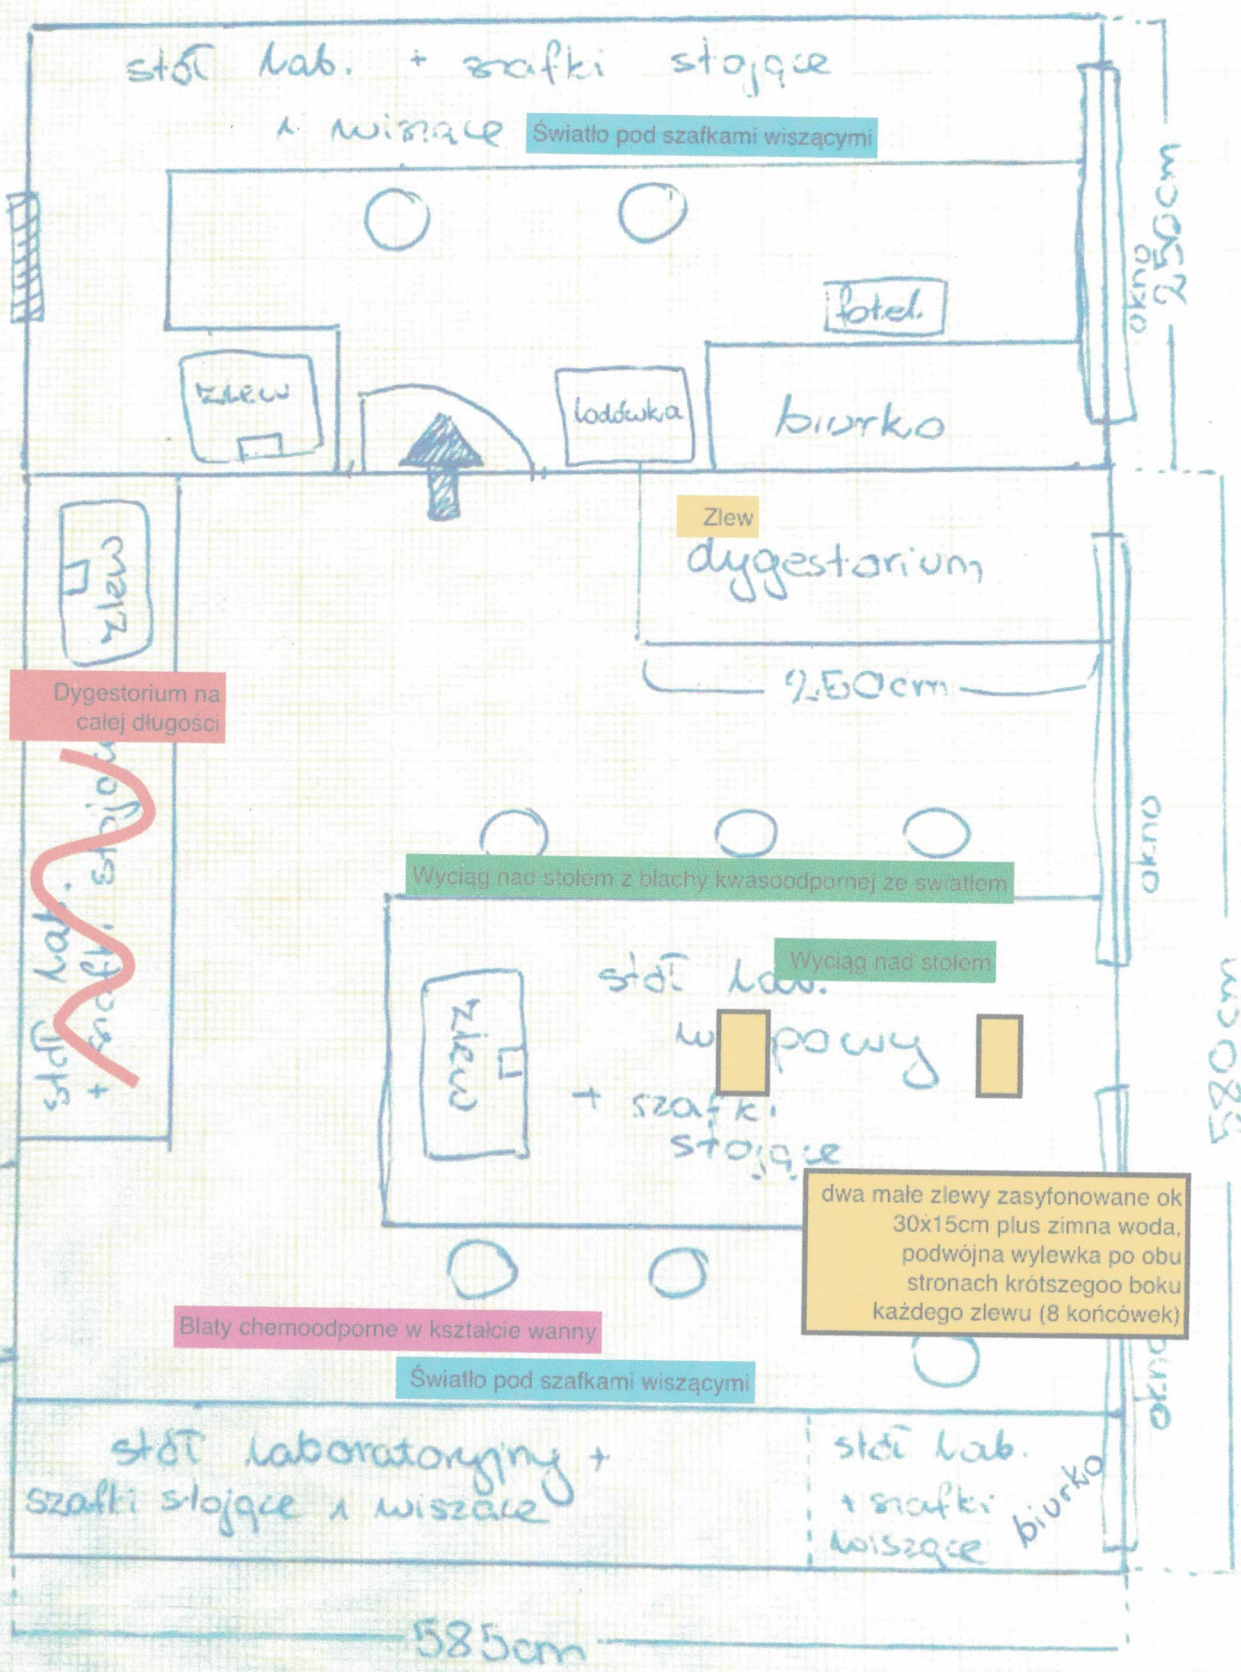 stół lab. + szafki stojące
i wiszące
Światło pod szafkami wiszącymi
250cm
okno
fotel
zlew
lodówka
biurko
zlew
Zlew
dygestorium
260cm
Dygestorium na
całej długości
stół lab.
+ szafki stojące
okno
Wyciąg nad stołem z blachy kwasoodpornej ze swiatłem
Wyciąg nad stołem
stół lab.
zlew
+ szafki
stojące
580cm
dwa małe zlewy zasyfonowane ok
30x15cm plus zimna woda,
podwójna wylewka po obu
stronach krótszegoo boku
każdego zlewu (8 końcówek)
Blaty chemoodporne w kształcie wanny
Światło pod szafkami wiszącymi
okno
stół laboratoryjny +
szafki stojące i wiszące
stół lab.
+ szafki
wiszące
biurko
585cm